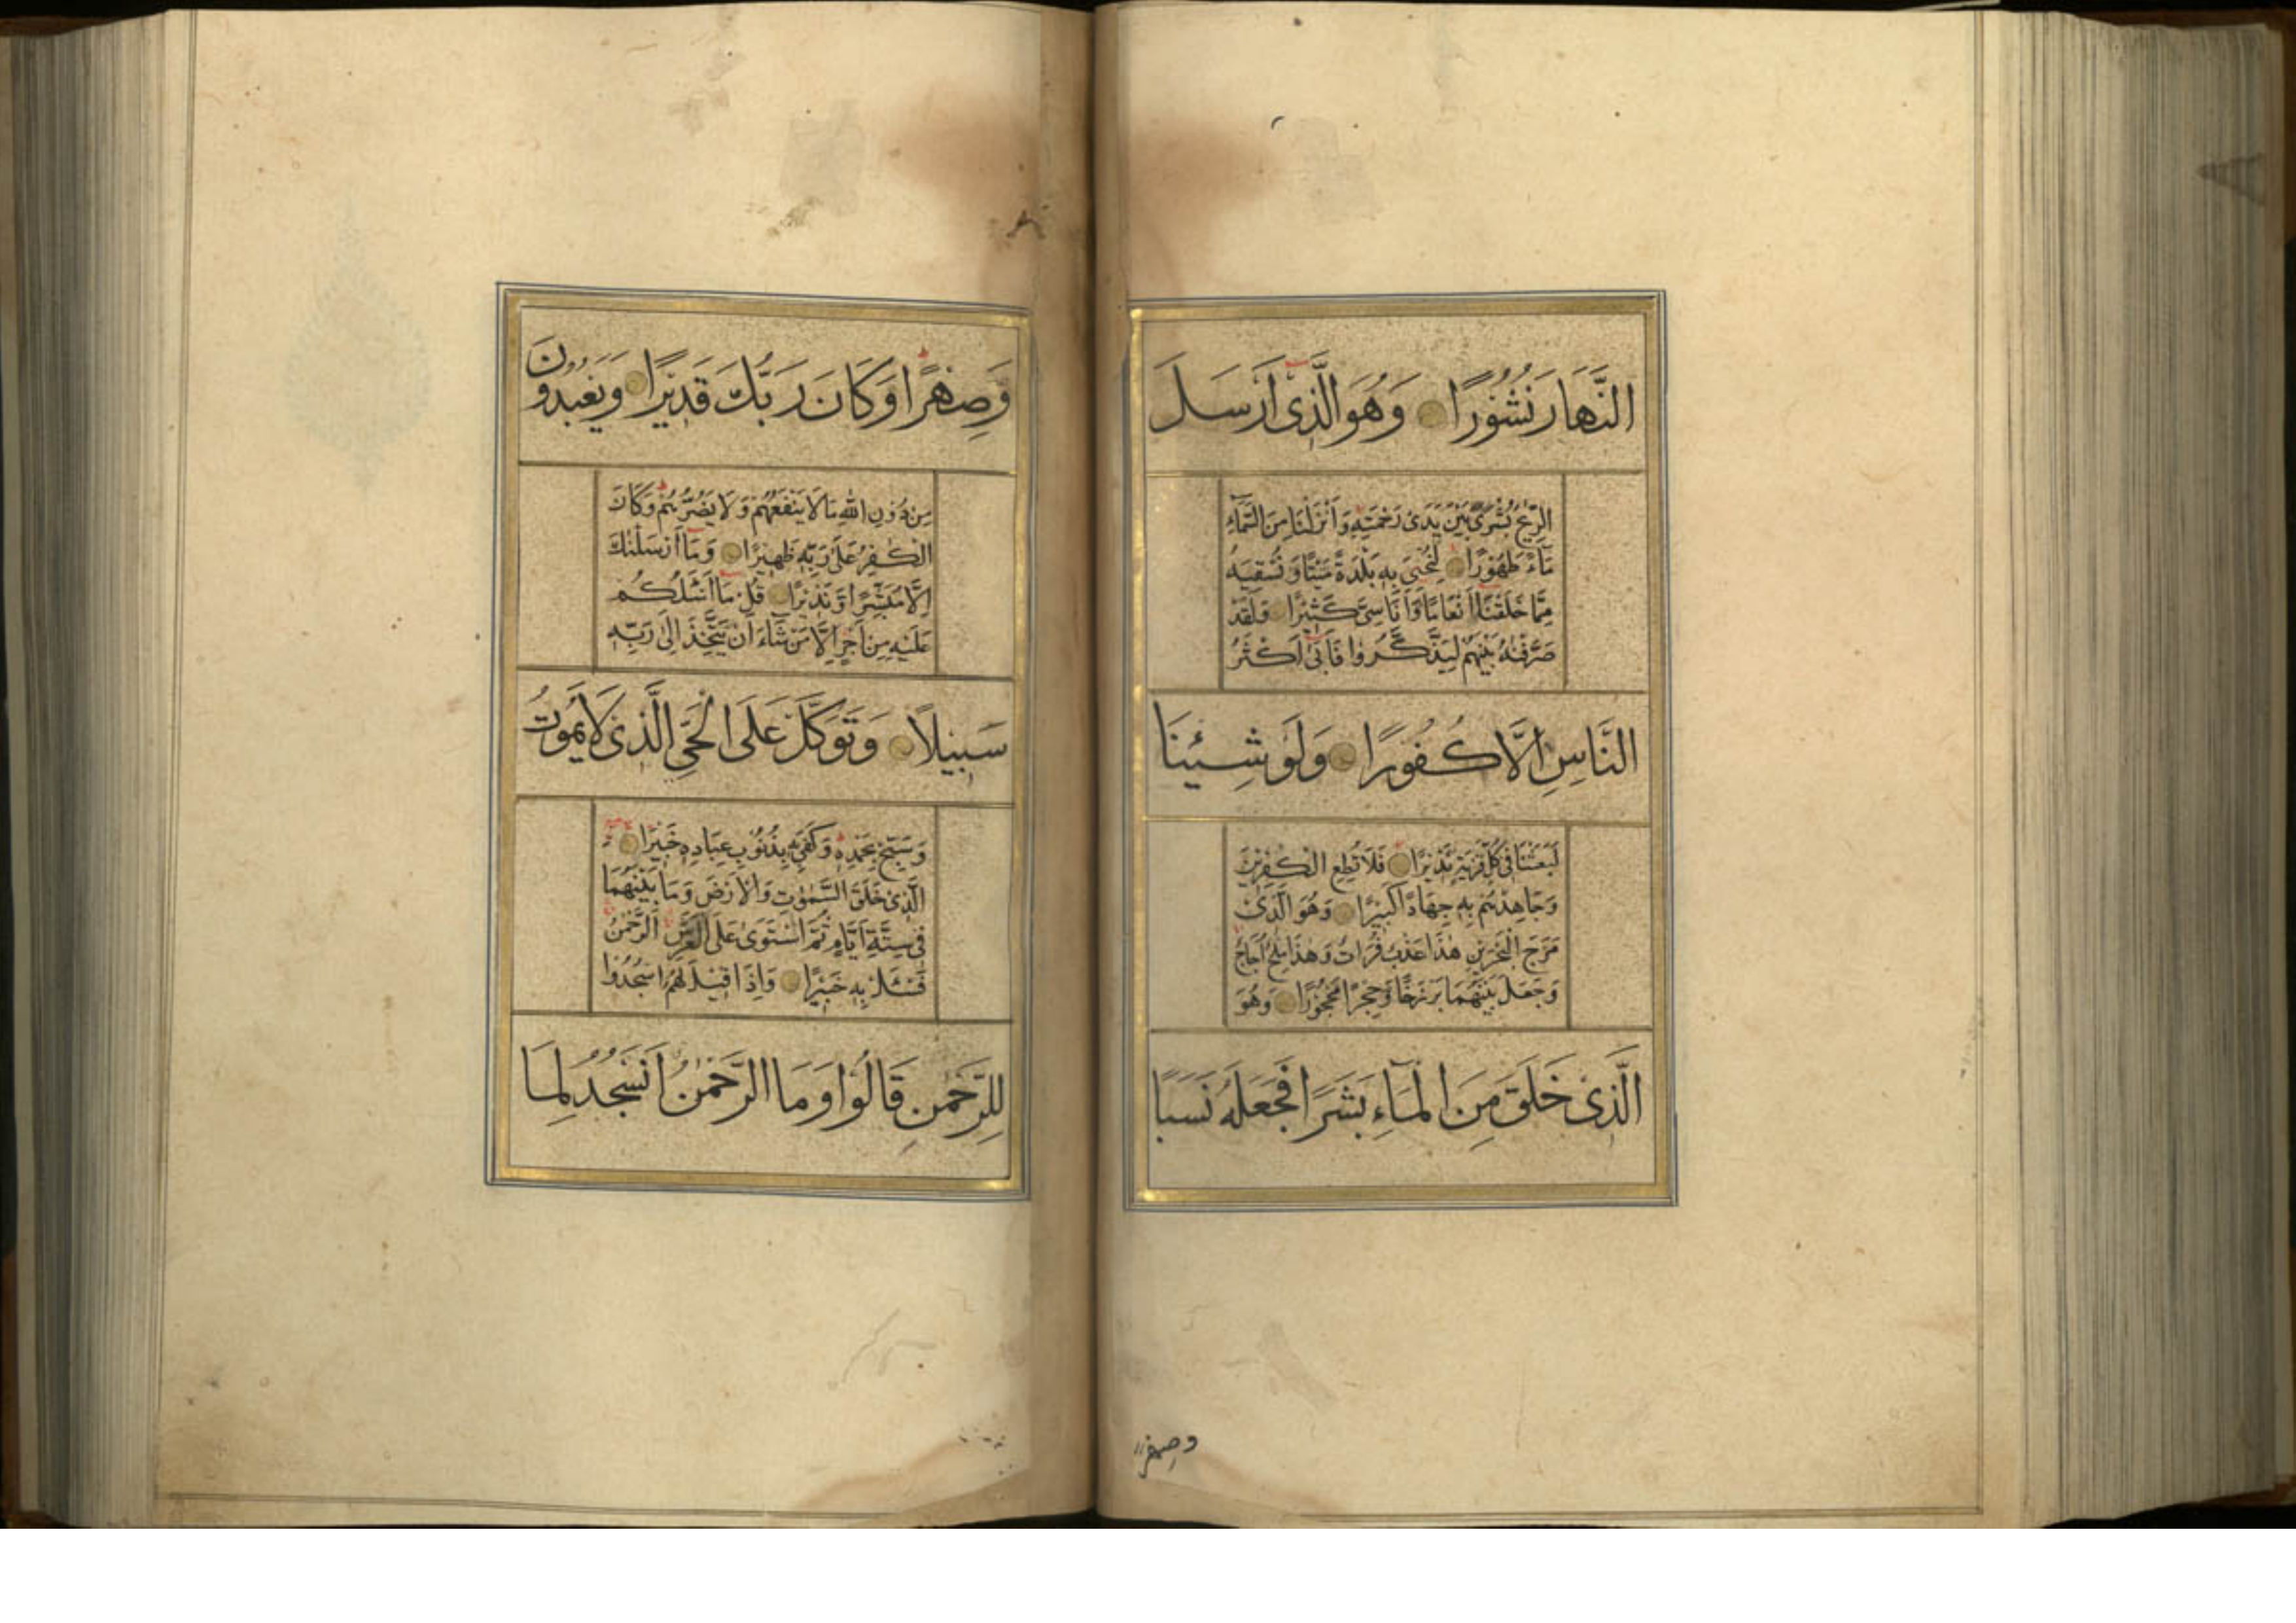 النَّهَارَ نُشُورًا وَهُوَ الَّذِى اَرْسَلَ
الرِّيٰحَ بُشْرًى بَيْنَ يَدَىْ رَحْمَتِهٖ وَاَنْزَلْنَا مِنَ السَّمَآءِ
مَآءً طَهُوْرًا لِنُحْيِىَ بِهٖ بَلْدَةً مَيْتًا وَنُسْقِيَهُ
مِمَّا خَلَقْنَا اَنْعَامًا وَاَنَاسِىَّ كَثِيْرًا وَلَقَدْ
صَرَّفْنٰهُ بَيْنَهُمْ لِيَذَّكَّرُوْا فَاَبٰى اَكْثَرُ
النَّاسِ اِلَّا كُفُوْرًا وَلَوْ شِئْنَا
لَبَعَثْنَا فِى كُلِّ قَرْيَةٍ نَذِيْرًا فَلَا تُطِعِ الْكٰفِرِيْنَ
وَجَاهِدْهُمْ بِهٖ جِهَادًا كَبِيْرًا وَهُوَ الَّذِىْ
مَرَجَ الْبَحْرَيْنِ هٰذَا عَذْبٌ فُرَاتٌ وَهٰذَا مِلْحٌ اُجَاجٌ
وَجَعَلَ بَيْنَهُمَا بَرْزَخًا وَحِجْرًا مَحْجُوْرًا وَهُوَ
الَّذِىْ خَلَقَ مِنَ الْمَآءِ بَشَرًا فَجَعَلَهُ نَسَبًا
وصهرا
وَصِهْرًا وَكَانَ رَبُّكَ قَدِيْرًا وَيَعْبُدُوْنَ
مِنْ دُوْنِ اللهِ مَا لَا يَنْفَعُهُمْ وَلَا يَضُرُّهُمْ وَكَانَ
الْكٰفِرُ عَلٰى رَبِّهٖ ظَهِيْرًا وَمَا اَرْسَلْنٰكَ
اِلَّا مُبَشِّرًا وَنَذِيْرًا قُلْ مَا اَسْئَلُكُمْ
عَلَيْهِ مِنْ اَجْرٍ اِلَّا مَنْ شَآءَ اَنْ يَتَّخِذَ اِلٰى رَبِّهٖ
سَبِيْلًا وَتَوَكَّلْ عَلَى الْحَىِّ الَّذِىْ لَا يَمُوْتُ
وَسَبِّحْ بِحَمْدِهٖ وَكَفٰى بِهٖ بِذُنُوْبِ عِبَادِهٖ خَبِيْرًا
الَّذِىْ خَلَقَ السَّمٰوٰتِ وَالْاَرْضَ وَمَا بَيْنَهُمَا
فِىْ سِتَّةِ اَيَّامٍ ثُمَّ اسْتَوٰى عَلَى الْعَرْشِ اَلرَّحْمٰنُ
فَسْئَلْ بِهٖ خَبِيْرًا وَاِذَا قِيْلَ لَهُمُ اسْجُدُوْا
لِلرَّحْمٰنِ قَالُوْا وَمَا الرَّحْمٰنُ اَنَسْجُدُ لِمَا